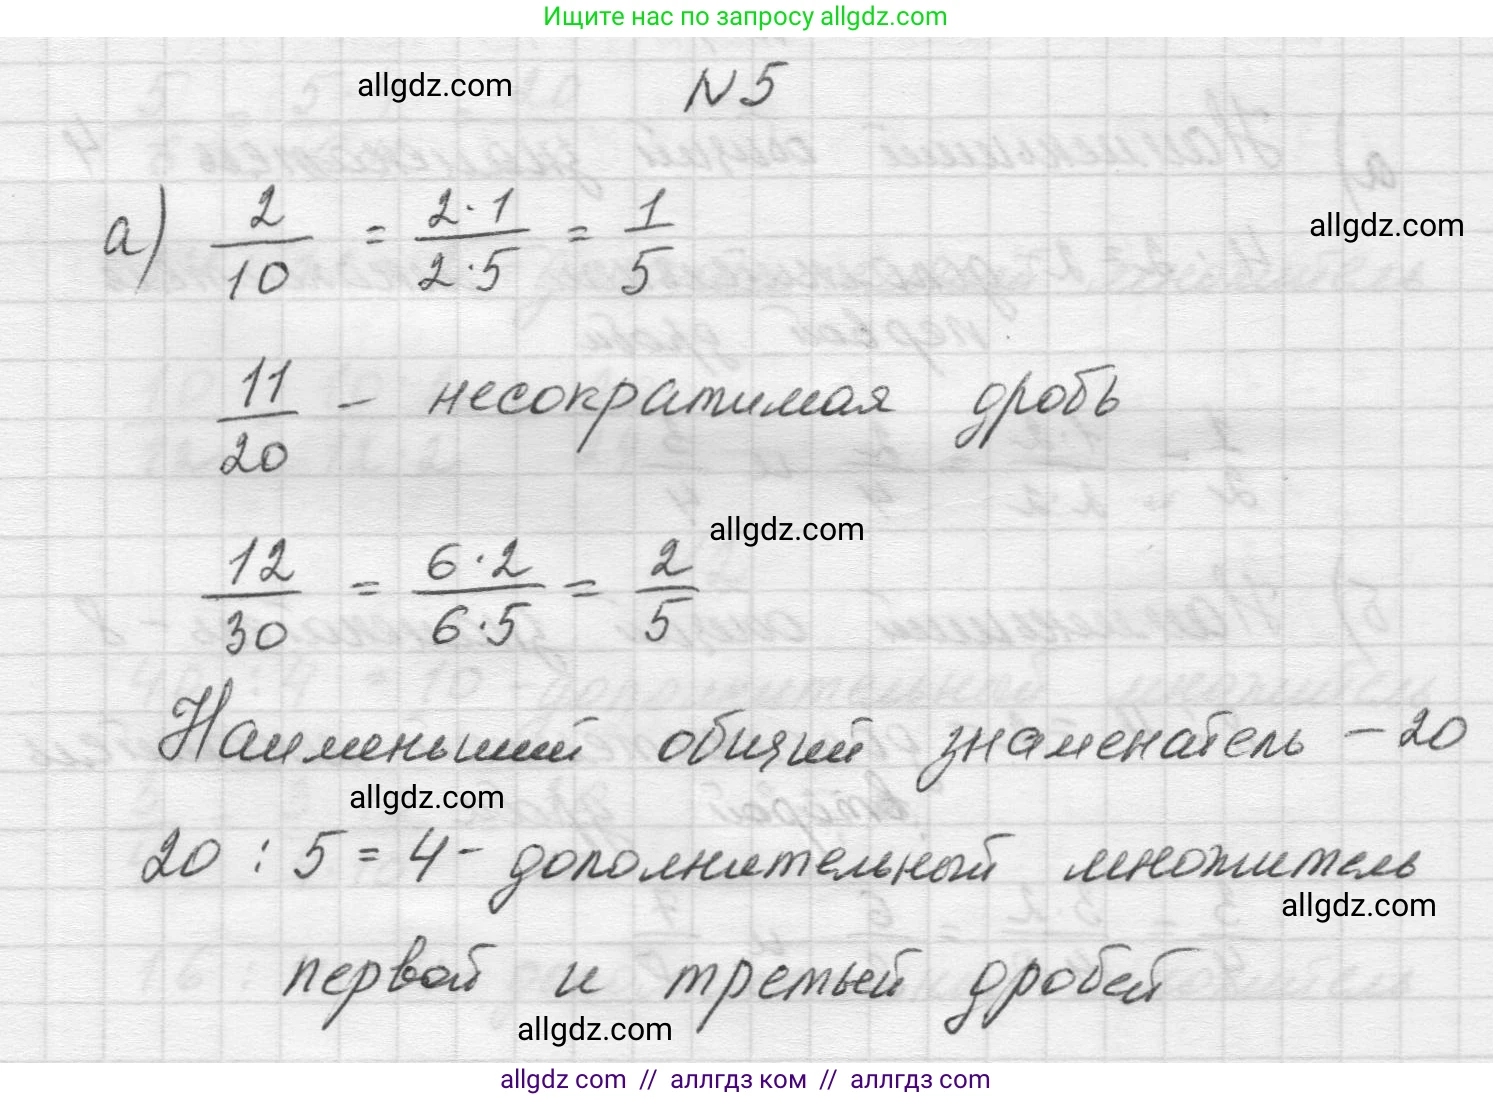 Ищите нас по запросу allgdz.com
allgdz.com
N 5
а) 2/10 = 2·1/2·5 = 1/5
allgdz.com
11/20 – несократимая дробь
allgdz.com
12/30 = 6·2/6·5 = 2/5
Наименьший общий знаменатель – 20
allgdz.com
20 : 5 = 4 – дополнительный множитель
allgdz.com
первой и третьей дробей
allgdz.com
allgdz com // аллгдз ком // аллгдз com